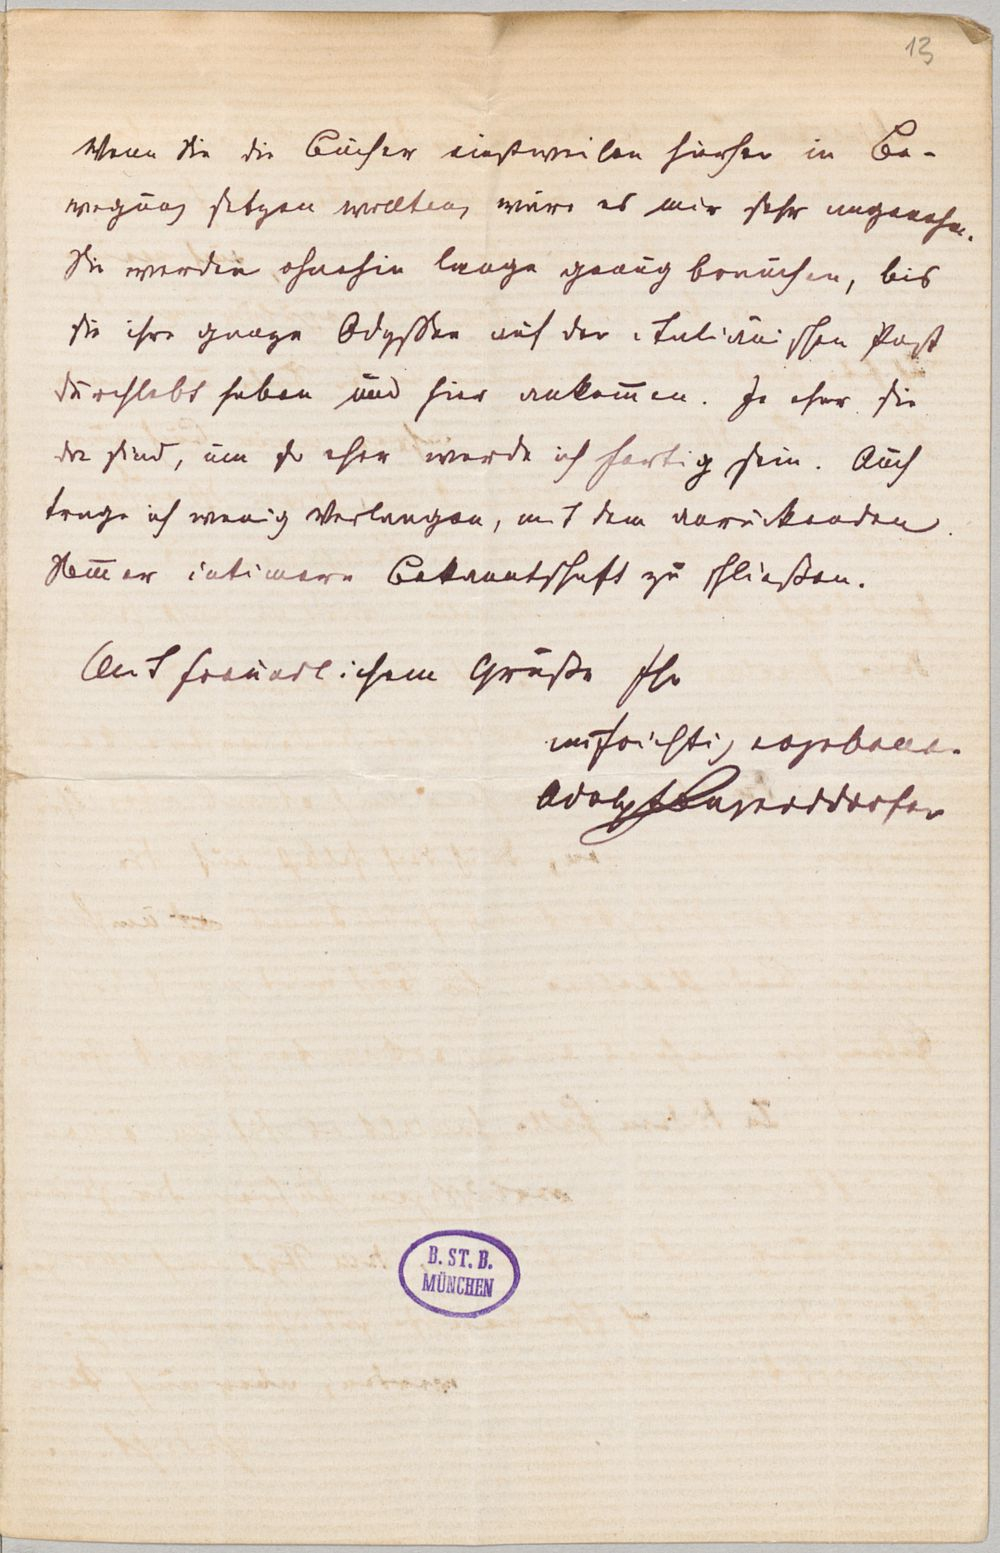 13
Wenn Sie die Bücher einstweilen hierher in Be-
wegung setzen wollten, wäre es mir sehr angenehm.
Sie werden ohnehin lange genug brauchen, bis
sie ihre ganze Odyssee auf der italiänischen Post
durchlebt haben und hier ankom̅en. Je eher sie
da sind, um so eher werde ich fertig sein. Auch
trage ich wenig Verlangen, mit dem anrückenden
Som̅er intimere Bekanntschaft zu schließen.
Mit freundlichem Gruße Ihr
aufrichtig ergebener
Adolph Bayersdorfer
B. ST. B.
MÜNCHEN